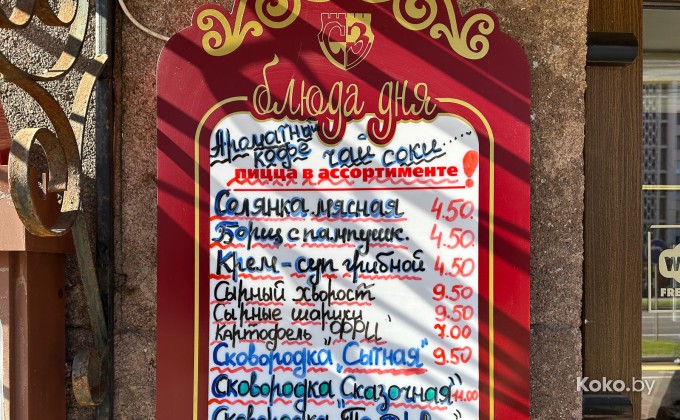 СЗ
блюда дня
Ароматный
кофе чай соки.....
пицца в ассортименте!
Солянка мясная 4.50.
Борщ с пампушк. 4.50.
Крем-суп грибной 4.50
Сырный хворост 9.50
Сырные шарики 9.50
Картофель "ФРИ" 7.00
Сковородка "Сытная" 9.50
Сковородка Сказочная" 11.00
Сковородка
W
FRE
Koko.by